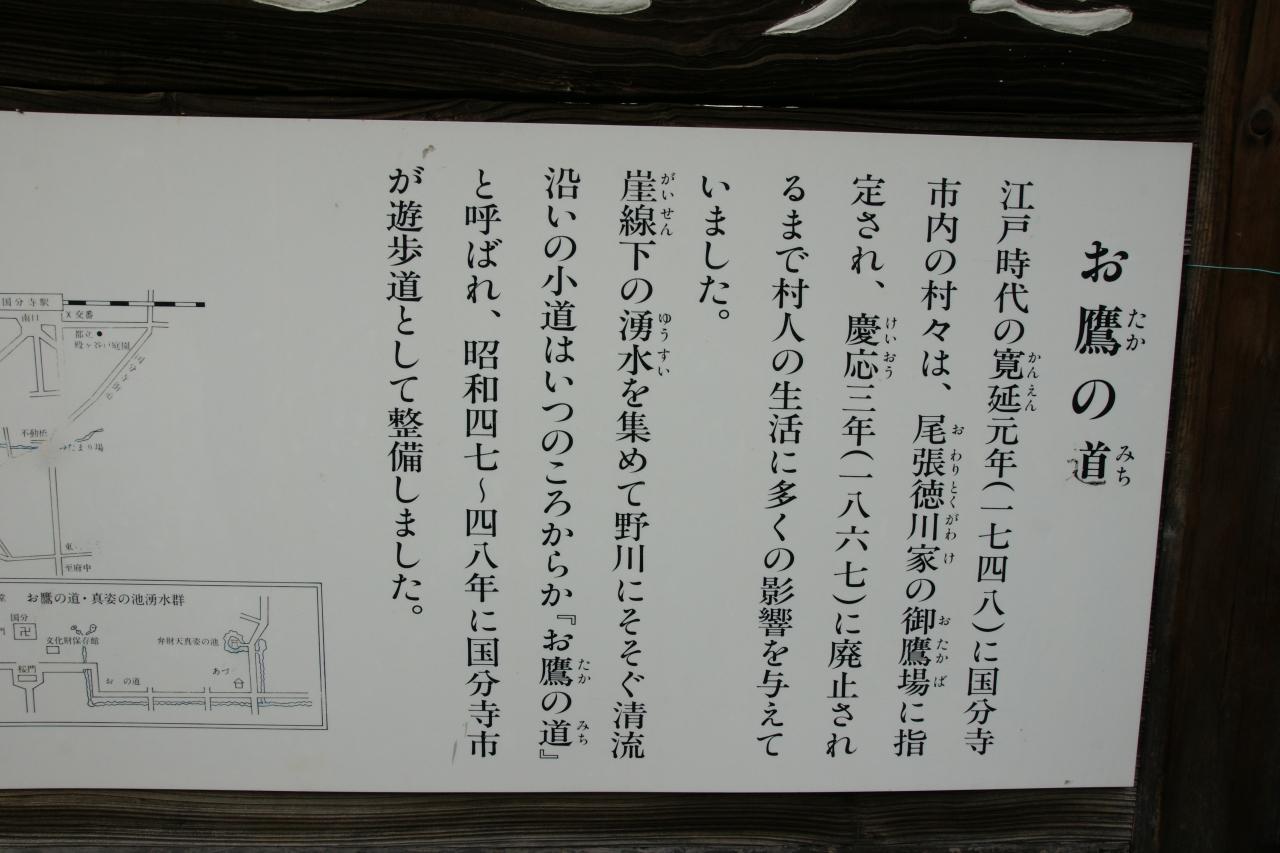 お鷹の道
江戸時代の寛延元年(一七四八)に国分寺
市内の村々は、尾張徳川家の御鷹場に指
定され、慶応三年(一八六七)に廃止され
るまで村人の生活に多くの影響を与えて
いました。
崖線下の湧水を集めて野川にそそぐ清流
沿いの小道はいつのころからか『お鷹の道』
と呼ばれ、昭和四七〜四八年に国分寺市
が遊歩道として整備しました。
国分寺駅
南口
X交番
都立
殿ヶ谷戸庭園
不動橋
至府中
お鷹の道・真姿の池湧水群
国分
文化財保存館
弁財天真姿の池
楼門
お の道
あづ